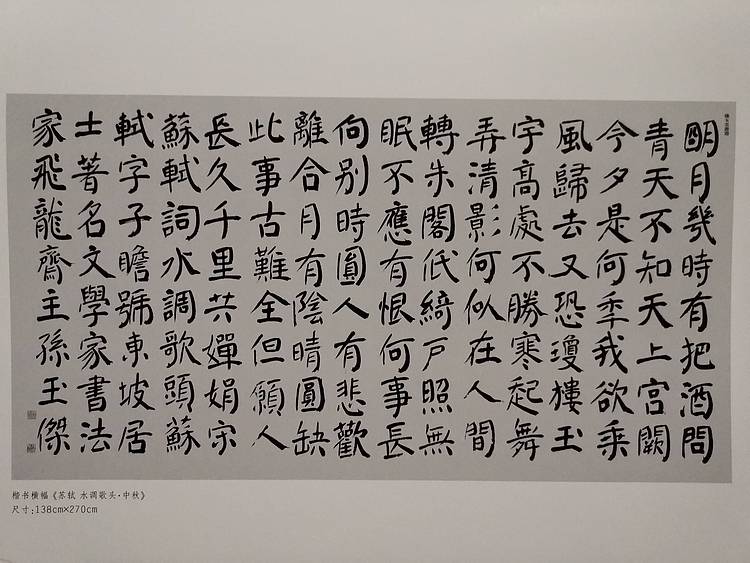 明月幾時有把酒問
青天不知天上宫闕
今夕是何年我欲乘
風歸去又恐瓊樓玉
宇高處不勝寒起舞
弄清影何似在人間
轉朱閣低綺户照無
眠不應有恨何事長
向别時圓人有悲歡
離合月有陰晴圓缺
此事古難全但願人
長久千里共嬋娟宋
蘇軾詞水調歌頭蘇
軾字子瞻號東坡居
士著名文學家書法
家飛龍齋主孫玉傑
楷书横幅《苏轼 水调歌头·中秋》
尺寸:138cm×270cm